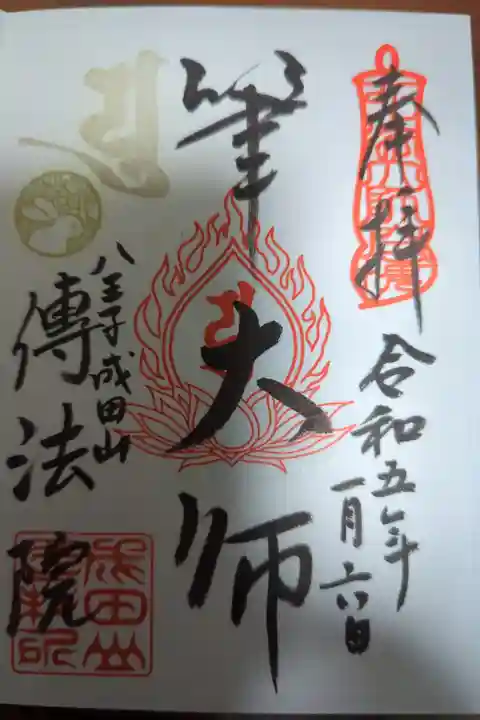 奉拝
令和五年
一月六日
筆大師
八王子成田山
傳法院